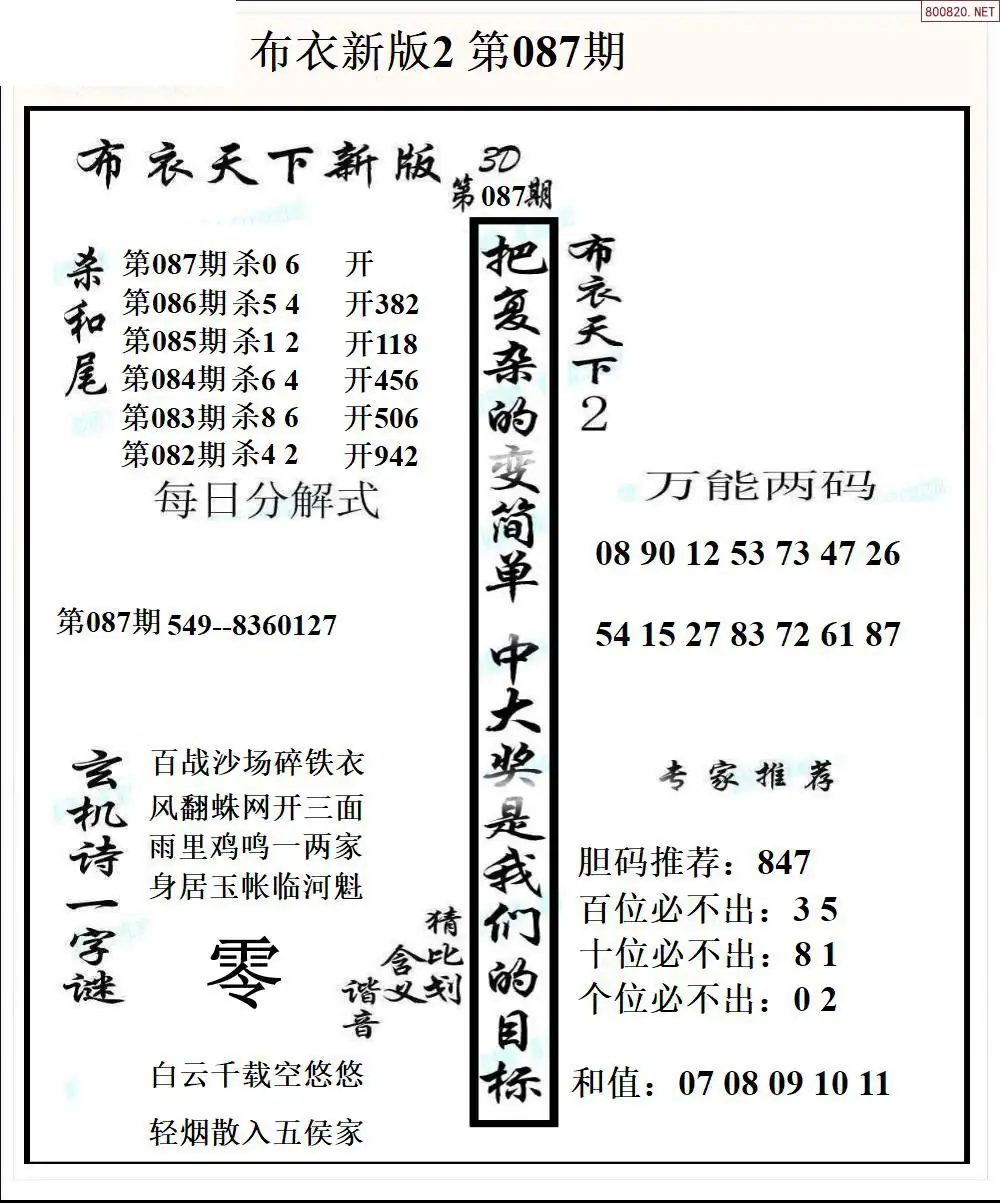 800820.NET
布衣新版2 第087期
布衣天下新版 3D
第087期
杀和尾
第087期 杀0 6 开
第086期 杀5 4 开382
第085期 杀1 2 开118
第084期 杀6 4 开456
第083期 杀8 6 开506
第082期 杀4 2 开942
每日分解式
第087期 549--8360127
玄机诗一字谜
百战沙场碎铁衣
风翻蛛网开三面
雨里鸡鸣一两家
身居玉帐临河魁
零
猜比划
含义
谐音
白云千载空悠悠
轻烟散入五侯家
把复杂的变简单 中大奖是我们的目标
布衣天下2
万能两码
08 90 12 53 73 47 26
54 15 27 83 72 61 87
专家推荐
胆码推荐：847
百位必不出：3 5
十位必不出：8 1
个位必不出：0 2
和值：07 08 09 10 11